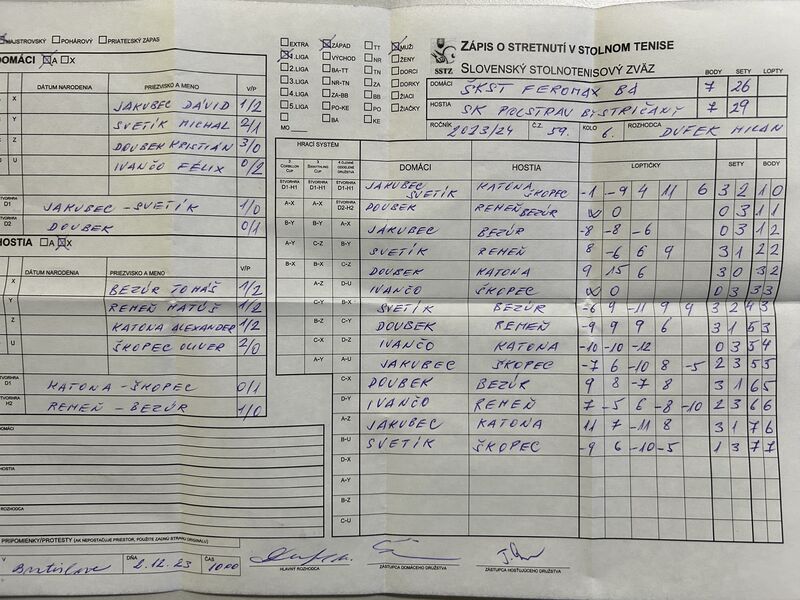 MAJSTROVSKÝ POHÁROVÝ PRIATEĽSKÝ ZÁPAS
DOMÁCI A X
DÁTUM NARODENIA PRIEZVISKO A MENO V/P
X JAKUBEC DÁVID 1/2
Y SVETÍK MICHAL 2/1
Z DOUBEK KRISTIÁN 3/0
U IVANČO FÉLIX 0/2
D1 JAKUBEC - SVETÍK 1/0
D2 DOUBEK 0/1
HOSTIA A X
DÁTUM NARODENIA PRIEZVISKO A MENO V/P
X BEZÚR TOMÁŠ 1/2
Y REMEŇ MATÚŠ 1/2
Z KATONA ALEXANDER 1/2
U ŠKOPEC OLIVER 2/0
D1 KATONA - ŠKOPEC 0/1
H2 REMEŇ - BEZÚR 1/0
DOMÁCI
HOSTIA
ROZHODCA
PRIPOMIENKY/PROTESTY (AK NEPOSTAČUJE PRIESTOR, POUŽITE ZADNÚ STRANU ORIGINÁLU)
V Bratislave DŇA 2.12.23 ČAS 1000
HLAVNÝ ROZHODCA
ZÁSTUPCA DOMÁCEHO DRUŽSTVA
ZÁSTUPCA HOSŤUJÚCEHO DRUŽSTVA
EXTRA ZÁPAD TT MUŽI
1.LIGA VÝCHOD NR ŽENY
2.LIGA BA-TT TN DORCI
3.LIGA NR-TN ZA DORKY
4.LIGA ZA-BB BB ŽIACI
5.LIGA PO-KE PO ŽIAČKY
BA KE
MO
SSTZ
ZÁPIS O STRETNUTÍ V STOLNOM TENISE
SLOVENSKÝ STOLNOTENISOVÝ ZVÄZ
BODY SETY LOPTY
DOMÁCI ŠKST FEROMAX BA 7 26
HOSTIA SK POLSTRAV BYSTRIČANY 7 29
ROČNÍK 2023/24 Č.Z. 59. KOLO 6. ROZHODCA DUFEK MILAN
HRACÍ SYSTÉM
DOMÁCI HOSTIA LOPTIČKY SETY BODY
D1-H1 D1-H1 D1-H1 JAKUBEC SVETÍK KATONA ŠKOPEC -1 -9 4 11 6 3 2 1 0
A-X A-X D2-H2 DOUBEK REMEŇ BEZÚR W 0 0 3 1 1
B-Y B-Y A-X JAKUBEC BEZÚR -8 -8 -6 0 3 1 2
A-Y C-Z B-Y SVETÍK REMEŇ 8 -6 6 9 3 1 2 2
B-X B-X C-Z DOUBEK KATONA 9 15 6 3 0 3 2
A-Z D-U IVANČO ŠKOPEC W 0 0 3 3 3
C-Y B-X SVETÍK BEZÚR -6 9 -11 9 4 3 2 4 3
B-Z C-Y DOUBEK REMEŇ -9 9 9 6 3 1 5 3
C-X D-Z IVANČO KATONA -10 -10 -12 0 3 5 4
A-Y A-U JAKUBEC ŠKOPEC -7 6 -10 8 -5 2 3 5 5
C-X DOUBEK BEZÚR 9 8 -7 8 3 1 6 5
D-Y IVANČO REMEŇ 7 -5 6 -8 -10 2 3 6 6
A-Z JAKUBEC KATONA 11 7 -11 8 3 1 7 6
B-U SVETÍK ŠKOPEC -9 6 -10 -5 1 3 7 7
D-X
A-Y
B-Z
C-U